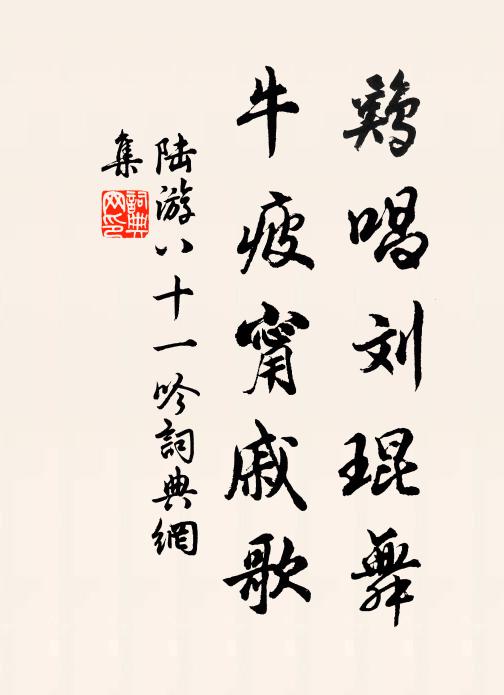 鷄唱刘琨舞
牛疲甯戚歌
陆游八十一吟詞典網
集
詞典
网印